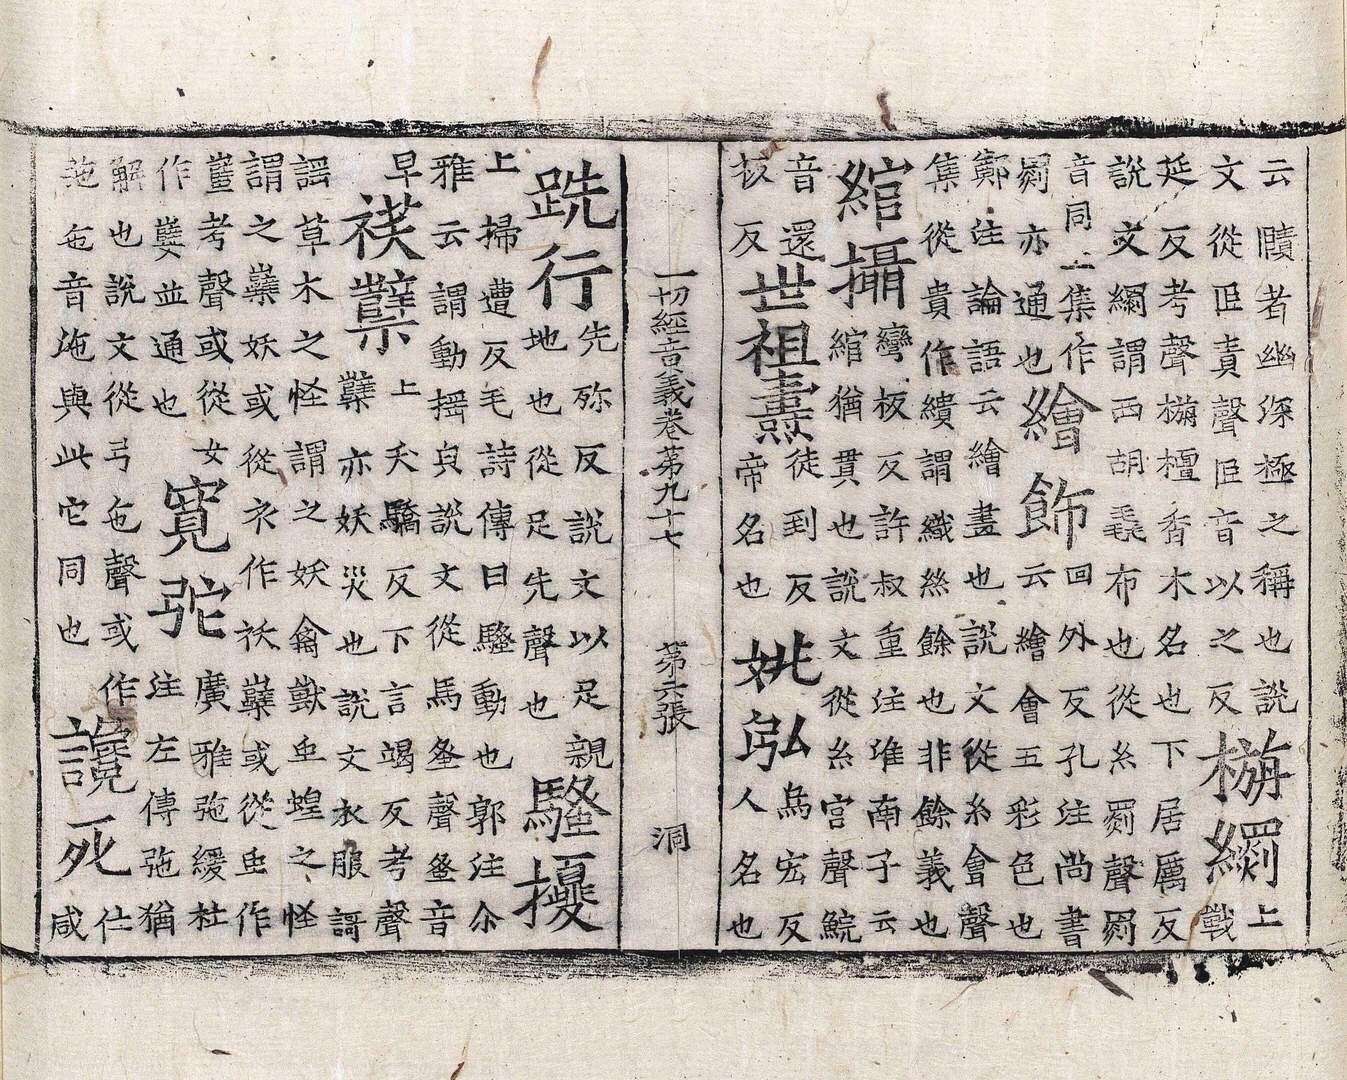 云賾者幽深極之稱也說
文從𦣞責聲𦣞音以之反
栴𦋺
上
戰
延反考聲栴檀香木名也下居厲反
說文𦋺謂西胡毳布也從糸罽聲罽
音同上集作
罽亦通也
繪飾
回外反孔注尚書
云繪會五彩色也
鄭注論語云繪畫也說文從糸會聲
集從貴作繢謂織絲餘也非餘義也
綰攝
彎板反許叔重注淮南子云
綰猶貫也說文從糸官聲鯇
音還
板反
世祖燾
徒到反
帝名也
姚泓
烏宏反
人名也
一切經音義卷第九十七 第六張 洞
跣行
先殄反說文以足親
地也從足先聲也
騷擾
上掃遭反毛詩傳曰騷動也郭注尒
雅云謂動搖皃說文從馬蚤聲蚤音
早
祅櫱
上夭驕反下言竭反考聲
櫱亦妖災也說文衣服謌
謡草木之怪謂之妖禽獸虫蝗之怪
謂之櫱妖或從衣作祅櫱或從虫作
蠥考聲或從女
作㜸並通也
寬弛
廣雅弛緩杜
注左傳弛猶
解也說文從弓㐌聲或作
㢮㐌音池與此它同也
讒死
仕
咸